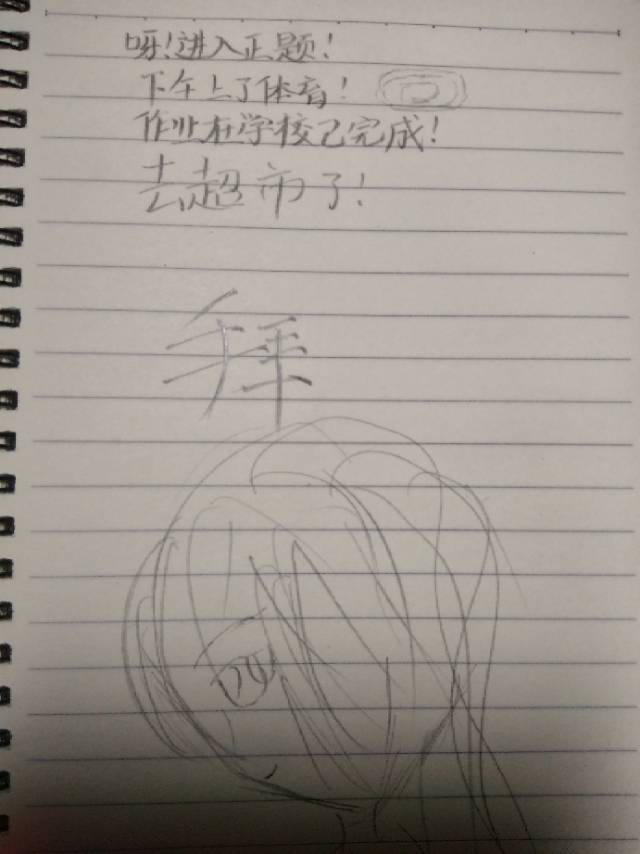 呀!进入正题!
下午上了体育!
作业在学校已完成!
去超市了!
拜